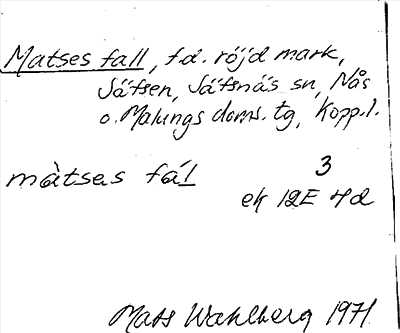 Matses fall, f.d. röjd mark,
Säfsen, Säfsnäs sn, Nås
o. Malungs doms. tg, Kopp.l.
màtsas fál 3
ek 12E 4d
Mats Wahlberg 1971